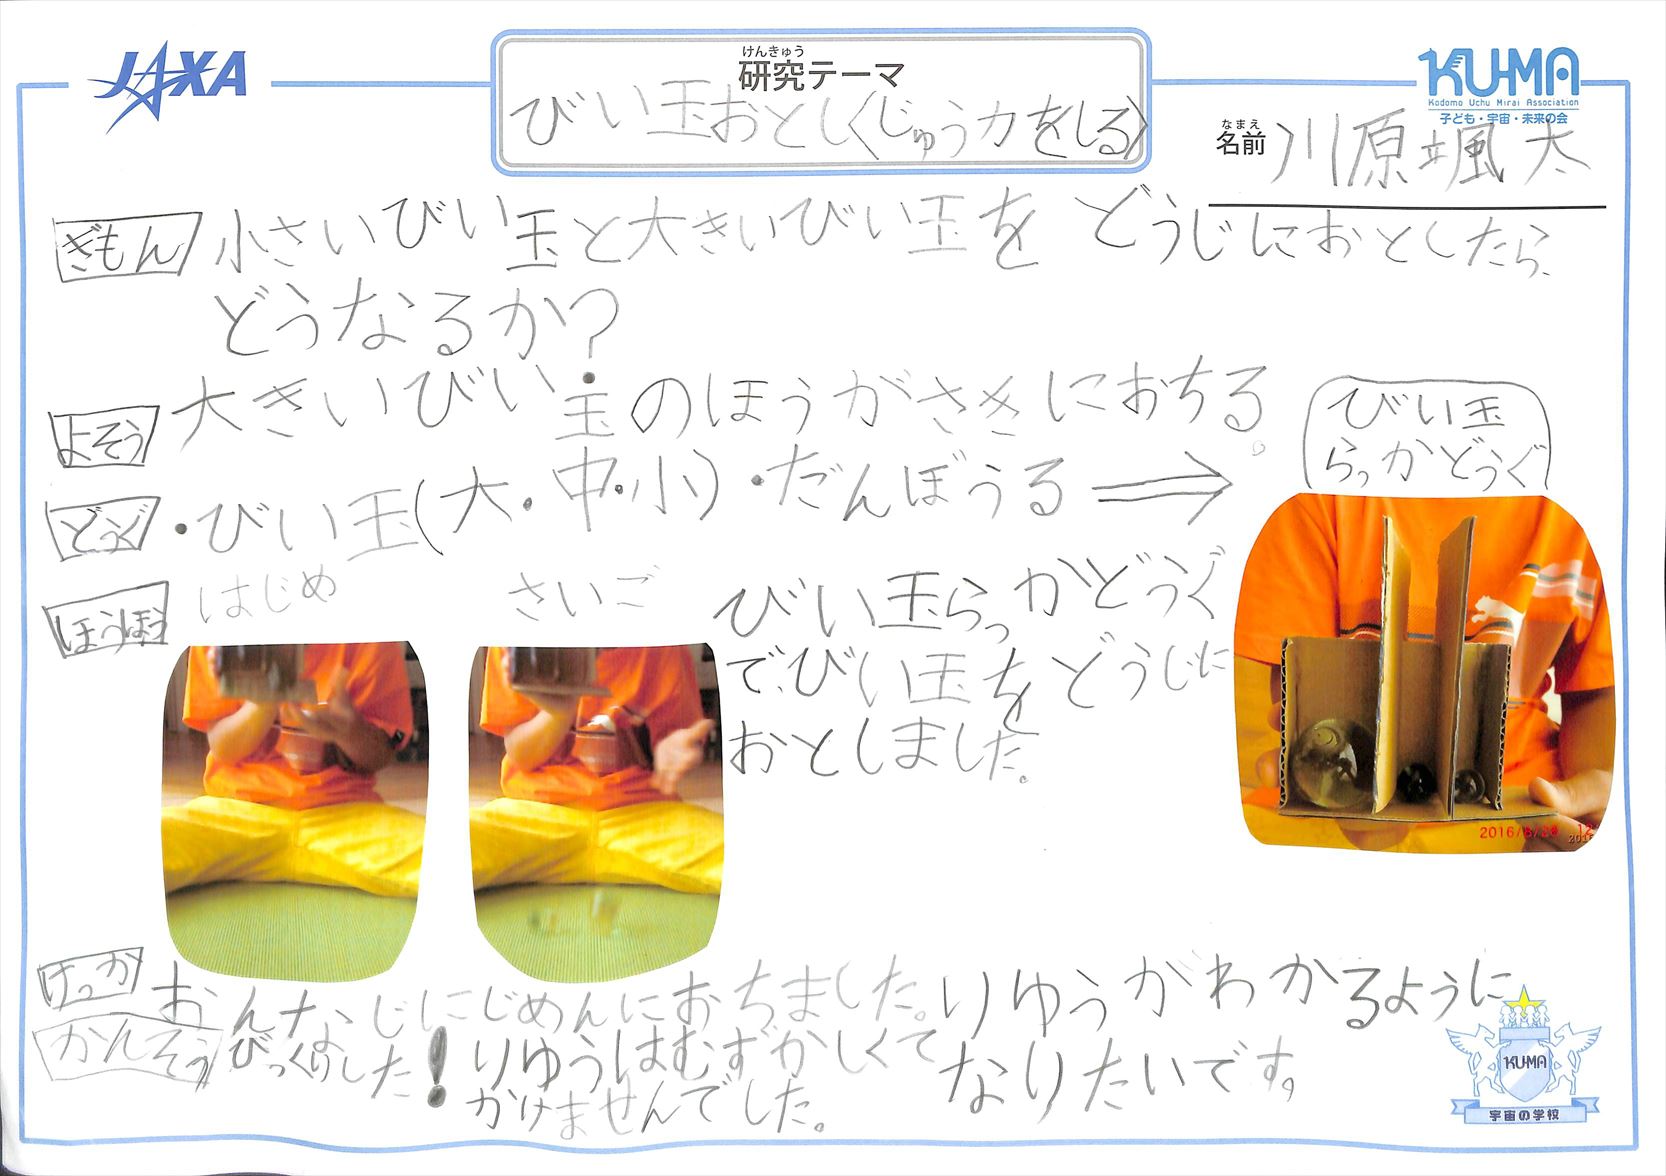 JAXA
けんきゅう
研究テーマ
びい玉おとし〈じゅう力をしる〉
KU-MA
Kodomo Uchu Mirai Association
子ども・宇宙・未来の会
なまえ
名前 川原颯太
ぎもん 小さいびい玉と大きいびい玉を どうじにおとしたら、
どうなるか?
よそう 大きいびい玉のほうがさきにおちる。
どうぐ ・びい玉(大・中・小)・だんぼうる ⇒
びい玉
らっかどうぐ
ほうほう はじめ さいご
びい玉らっかどうぐ
で、びい玉をどうじに
おとしました。
2016/8/20 12
けっか おんなじにじめんにおちました。
かんそう びっくりした! りゆうはむずかしくて
かけませんでした。
りゆうがわかるように
なりたいです。
KU-MA
宇宙の学校